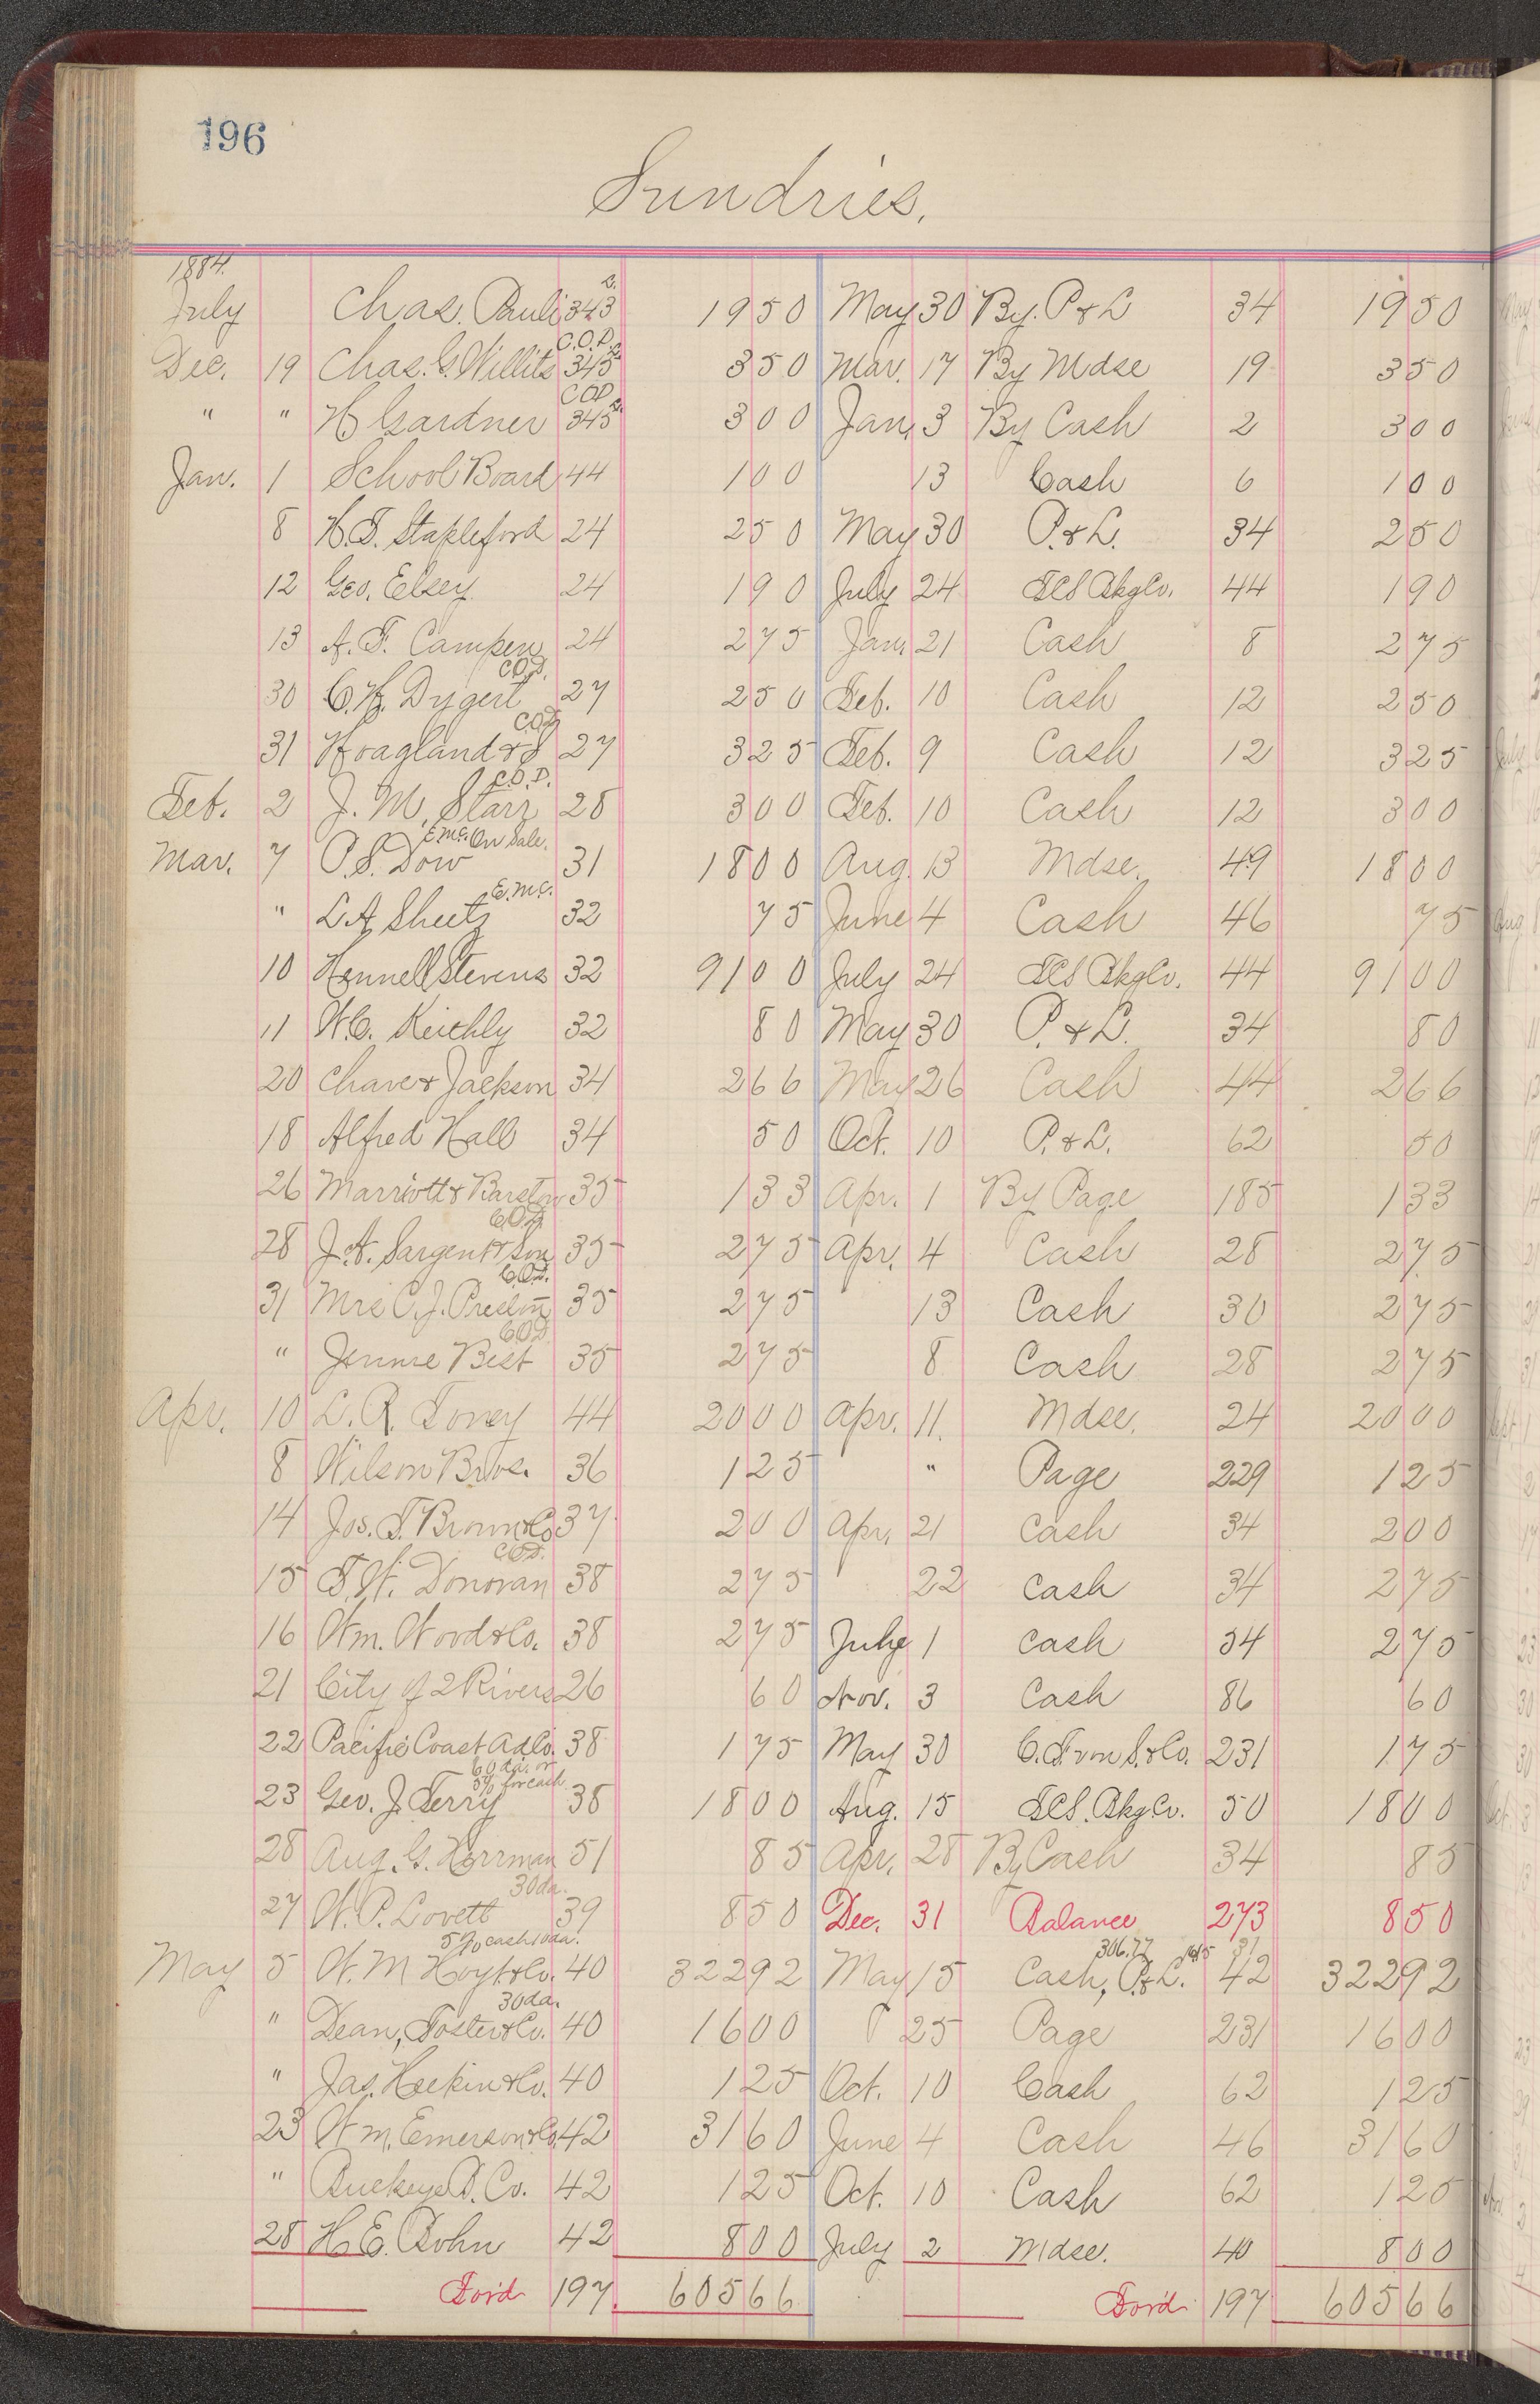 196
Sundries.
1884.
July Chas. Pauli 343 L. 19 50 May 30 By P & L 34 19 50
C.O.D.
Dec. 19 Chas. G. Willits 345 L. 3 50 Mar. 17 By Mdse 19 3 50
COD
" " H Gardner 345 L. 3 00 Jan. 3 By Cash 2 3 00
Jan. 1 School Board 44 1 00 13 Cash 6 1 00
8 H. T. Stapleford 24 2 50 May 30 P. & L. 34 2 50
12 Geo. Elsey 24 1 90 July 24 SCS Bkg Co. 44 1 90
13 A. F. Campen 24 2 75 Jan. 21 Cash 8 2 75
C.O.D.
30 C. H. Dygert 27 2 50 Feb. 10 Cash 12 2 50
C.O.D.
31 Hoagland & S 27 3 25 Feb. 9 Cash 12 3 25
C.O.D.
Feb. 2 J. M. Starr 28 3 00 Feb. 10 Cash 12 3 00
E.M.C. On Sale.
Mar. 7 O. S. Dow 31 18 00 Aug. 13 Mdse. 49 18 00
E.M.C.
" L A Sheetz 32 75 June 4 Cash 46 75
10 Hennell Stevens 32 91 00 July 24 SCS Bkg Co. 44 91 00
11 W. C. Keithly 32 80 May 30 P. & L. 34 80
20 Chave & Jackson 34 2 66 May 26 Cash 44 2 66
18 Alfred Hall 34 50 Oct. 10 P. & L. 62 50
26 Marriott & Barstow 35 1 33 Apr. 1 By Page 185 1 33
C.O.D.
28 J. A. Sargent & Son 35 2 75 Apr. 4 Cash 28 2 75
C.O.D.
31 Mrs C. J. Preston 35 2 75 13 Cash 30 2 75
C.O.D.
" Jennie Best 35 2 75 8 Cash 28 2 75
Apr. 10 L. R. Toney 44 20 00 Apr. 11. Mdse. 24 20 00
8 Wilson Bros. 36 1 25 " Page 229 1 25
14 Jos. T. Brown & Co 37 2 00 Apr. 21 Cash 34 2 00
C.O.D.
15 T. W. Donovan 38 2 75 22 Cash 34 2 75
16 Wm. Wood & Co. 38 2 75 1 Cash 34 2 75
21 City of 2 Rivers 26 60 Nov. 3 Cash 86 60
22 Pacific Coast Ad. Co. 38 1 75 May 30 C. F. von S. & Co. 231 1 75
60 da. or
5% for cash
23 Geo. J. Terry 38 18 00 Aug. 15 SCS. Bkg Co. 50 18 00
28 Aug. G. Herrman 51 85 Apr. 28 By Cash 34 85
30 da.
27 W. P. Lovett 39 8 50 Dec. 31 Balance 273 8 50
5% cash 10 da. 306.77 1615 31
May 5 W. M Hoyt & Co. 40 322 92 May 15 Cash, P. & L. 42 322 92
30 da.
" Dean, Foster & Co. 40 16 00 25 Page 231 16 00
" Jas. Heekin & Co. 40 1 25 Oct. 10 Cash 62 1 25
23 Wm. Emerson & Co. 42 31 60 June 4 Cash 46 31 60
" Buckeye P. Co. 42 1 25 Oct. 10 Cash 62 1 25
28 H. E. Bohn 42 8 00 July 2 Mdse. 40 8 00
For'd 197 605 66 For'd 197 605 66